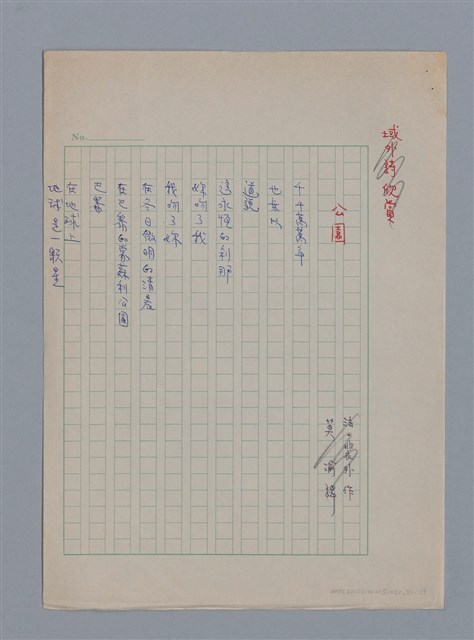 域外詩欣賞
公園
法·裴外作
莫渝譯
千千萬萬年
也無以
道說
這永恆的剎那
妳吻了我
我吻了妳
在冬日微明的清晨
在巴黎的蒙蘇利公園
巴黎
在地球上
地球是一顆星
No.